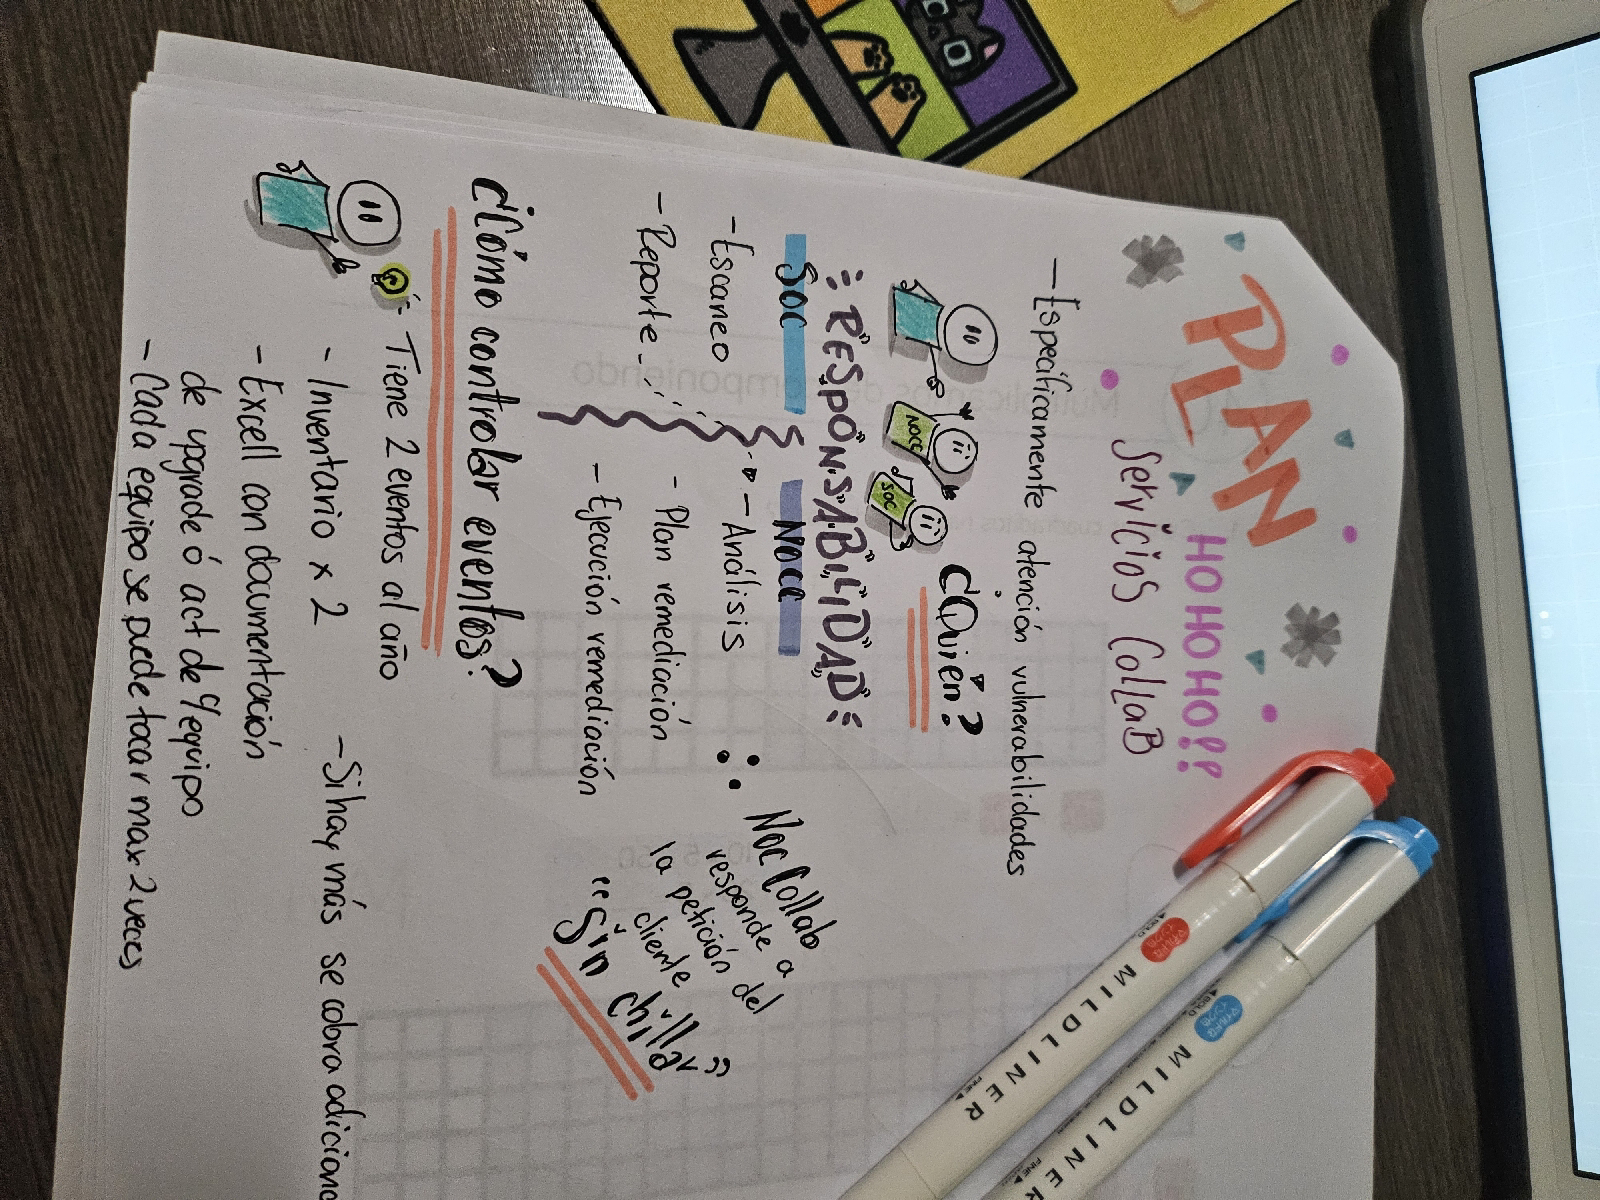 PLAN
HOHOHO!?
Servicios CollaB
- Específicamente atención vulnerabilidades
¿Quién?
NOCC
SOC
RESPONSABILIDAD
SOC
NOCC
- Escaneo
- Análisis
- Reporte
- Plan remediación
- Ejecución remediación
∴ Noc Collab
responde a
la petición del
cliente
"Sin chilla"
¿Cómo controlar eventos?
Tiene 2 eventos al año
- Inventario x 2
- Si hay más se cobra adiciona
- Excell con documentación
de upgrade ó act de c/equipo
- Cada equipo se puede tocar max 2 veces
MILDLINER
MILDLINER